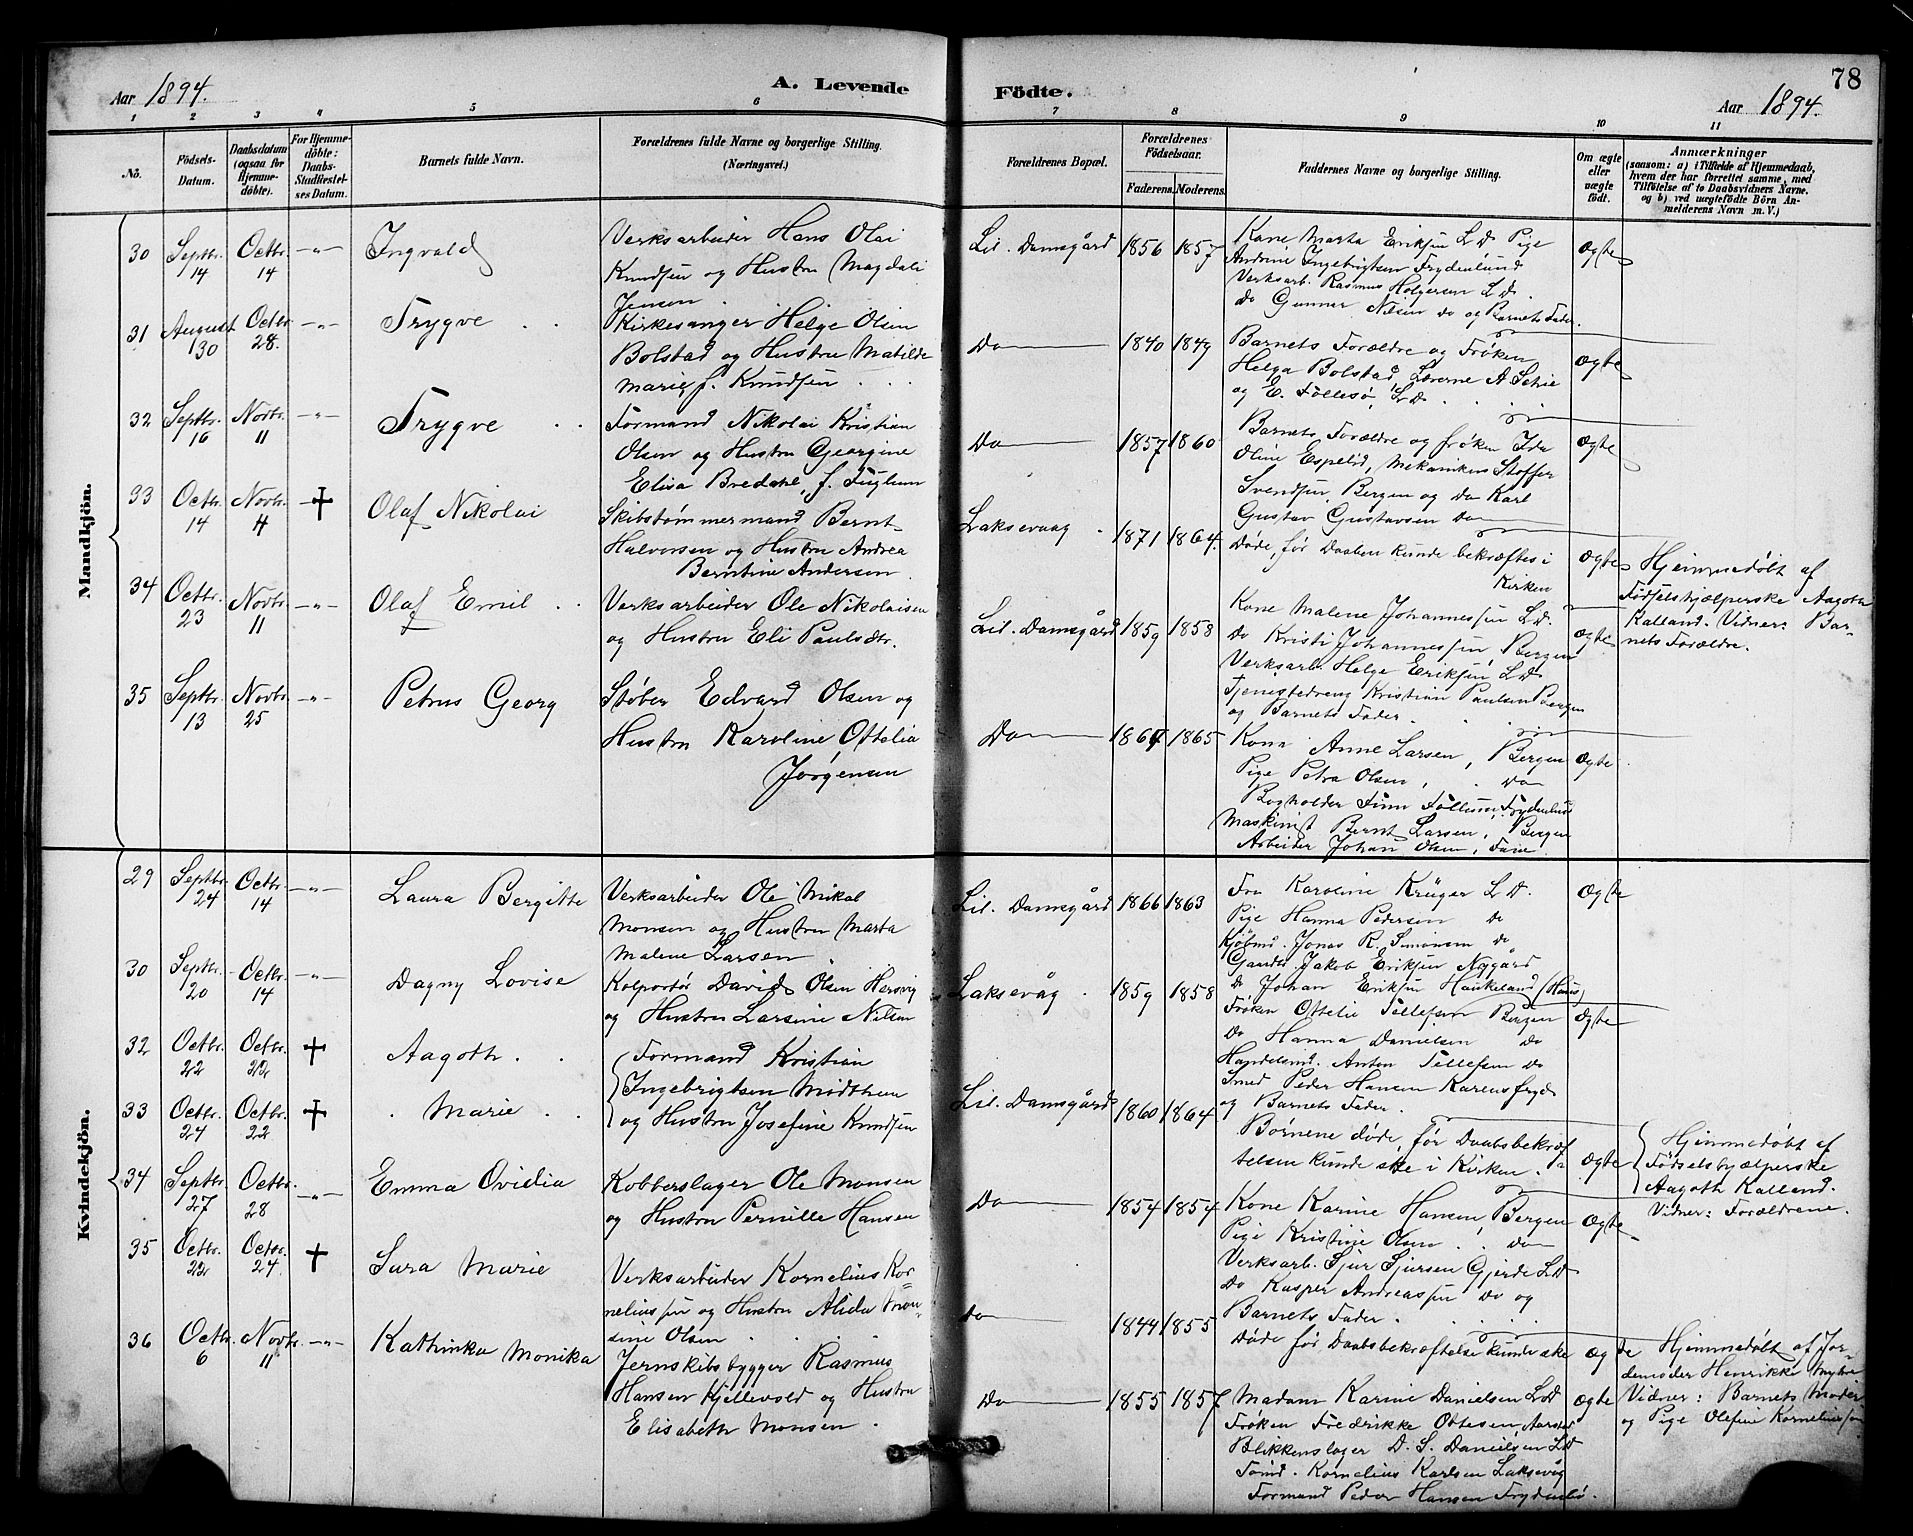 78
Aar 1894.
A. Levende Födte.
Aar 1894.
1 2 3 4 5 6 7 8 9 10 11
No.
Födsels-Datum.
Daabsdatum (ogsaa for Hjemme-döbte).
For Hjemme-döbte: Daabs-Stadfæstelses Datum.
Barnets fulde Navn.
Forældrenes fulde Navne og borgerlige Stilling. (Næringsvei.)
Forældrenes Bopæl.
Forældrenes Födselsaar.
Faderens. Moderens.
Faddernes Navne og borgerlige Stilling.
Om ægte eller uægte födt.
Anmærkninger
(saasom: a) i Tilfælde af Hjemmedaab,
hvem der har forrettet samme, med
Tilföielse af to Daabsvidners Navne,
og b) ved uægtefödte Börn An-
melderens Navn m. V.)
Mandkjön.
30 Septbr. 14 Octbr. 14 -"- Ingvald
Verksarbeider Hans Olai
Knudsen og Hustru Magdali
Jensen
Lil. Damsgård 1856 1857
Kone Marta Eriksen L.D. Pige
Andrine Ingebrigtsen Frydenlund
Verksarb. Rasmus Holgersen L.D.
do Gunnar Nilsen do og Barnets Fader.
Ægte
31 August 30 Octbr. 28. -"- Trygve
Kirkesanger Helge Olsen
Bolstad og Hustru Matilde
Marie, f. Knudsen
Do 1840 1849
Barnets Forældre og Frøken
Helga Bolstad, Lærerne A Setie
og E. Follesø, L.D.
Ægte
32 Septbr. 16 Novbr. 11 -"- Trygve
Formand Nikolai Kristian
Olsen og Hustru Georgine
Elisa Bredahl, f. Fuglum
Do 1857 1860
Barnets Forældre og frøken Ida
Oline Espelid, Mekanikens Stoffer
Svendsen, Bergen og do Karl
Gustav Gustavsen do
Ægte
33 Octbr. 14 Novbr. 4 † Olaf Nikolai
Skibstømmermand Bernt
Halvorsen og Hustru Andrea
Berntine Andersen
Laksevaag 1871 1864.
Døde, før Daaben kunde bekræftes i
Kirken
Ægte
Hjemmedøbt af
Fødselshjælperske Aagoth
Kalland. Vidner: Bar-
nets Forældre.
34 Octbr. 23 Novbr. 11 -"- Olaf Emil
Verksarbeider Ole Nikolaisen
og Hustru Eli Paulsdtr.
Lil. Damsgård 1859 1858
Kone Malene Johannessen L.D.
Do Kristi Johannessen, Bergen
Verksarb. Helge Eriksen L.D
Tjenestedreng Kristian Paulsen Bergen
og Barnets Fader.
Ægte
35 Septbr. 13 Novbr. 25 -"- Petrus Georg
Støber Edvard Olsen og
Hustru Karoline Ottelia
Jørgensen
Do 1867 1865
Kona Anne Larsen, Bergen
Pige Petra Olsen, do
Bogholder Finn Follesø, Frydenlund
Maskinist Bernt Larsen, Bergen
Arbeider Johan Olsen, Fane
Ægte
Kvindekjön.
29 Septbr. 24 Octbr. 14 -"- Laura Bergitte
Verksarbeider Ole Mikal
Monsen og Hustru Marta
Malene Larsen
Lil. Damsgård 1866 1863
Fru Karoline Krüger L.D.
Pige Hanna Pedersen do
Kjøbmd. Jonas R. Simonsen do
Gaardbr. Jakob Eriksen Nygård
Do Johan Eriksen Haukeland (Haus)
Ægte
30 Septbr. 20 Octbr. 14 -"- Dagny Lovise
Kolportør David Olsen Hersvig
og Hustru Larsine Nilsen
Laksevåg 1859 1858
Frøken Ottelie Tellefsen Bergen
Do Hanna Danielsen do
Handelsmd. Anton Tellefsen do
Smed Peder Hansen Karensfryd
og Barnets Fader.
Ægte
32 Octbr. 22 Octbr. 22 † Aagoth
33 Octbr. 24 Octbr. 22 † Marie
Formand Kristian
Ingebrigtsen Midthun
og Hustru Josefine Knudsen
Lil. Damsgård 1860 1864
Børnene døde, før Daabsbekræf-
telsen kunde ske i Kirken.
Ægte
Hjemmedøbt af
Fødselshjælperske
Aagoth Kalland.
Vidner: Forældrene.
34 Septbr. 27 Octbr. 28 -"- Emma Ovidia
Kobberslager Ole Monsen
og Hustru Pernille Hansen
Do 1854 1854
Kone Karine Hansen, Bergen
Pige Kristine Olsen do
Verksarb. Sjur Sjursen Gjerde L.D
Do Kasper Andreassen do og
Barnets Fader.
Ægte
35 Octbr. 22 Octbr. 24. † Sara Marie
Verksarbeider Kornelius Kor-
neliussen og Hustru Alida
Olsen
Do 1844 1855
Døde før Daabsbekræftelse kunde ske
Ægte
Hjemmedøbt af Jor-
demoder Henrikke
Vidner: Barnets Moder
og Pige Olefine Korneliussen
36 Octbr. 6 Novbr. 11 -"- Kathinka Monika
Jernskibsbygger Rasmus
Hansen Kjellevold og Hustru
Elisabeth Monsen
Do 1855 1857
Madam Karine Danielsen L.D
Frøken Fredrikke Ottesen, Aarstad
Blikkenslager D. S. Danielsen L.D
Tømd. Kornelius Karlsen Laksevåg
Formand Peder Hansen Frydenbø.
Ægte